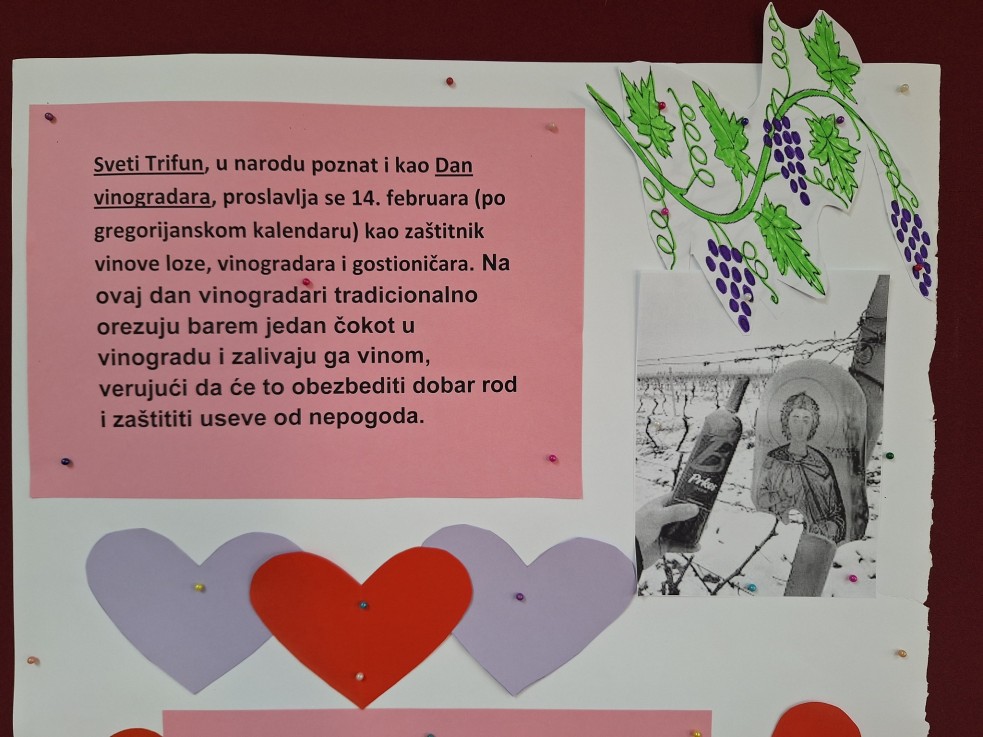 Sveti Trifun, u narodu poznat i kao Dan
vinogradara, proslavlja se 14. februara (po
gregorijanskom kalendaru) kao zaštitnik
vinove loze, vinogradara i gostioničara. Na
ovaj dan vinogradari tradicionalno
orezuju barem jedan čokot u
vinogradu i zalivaju ga vinom,
verujući da će to obezbediti dobar rod
i zaštititi useve od nepogoda.